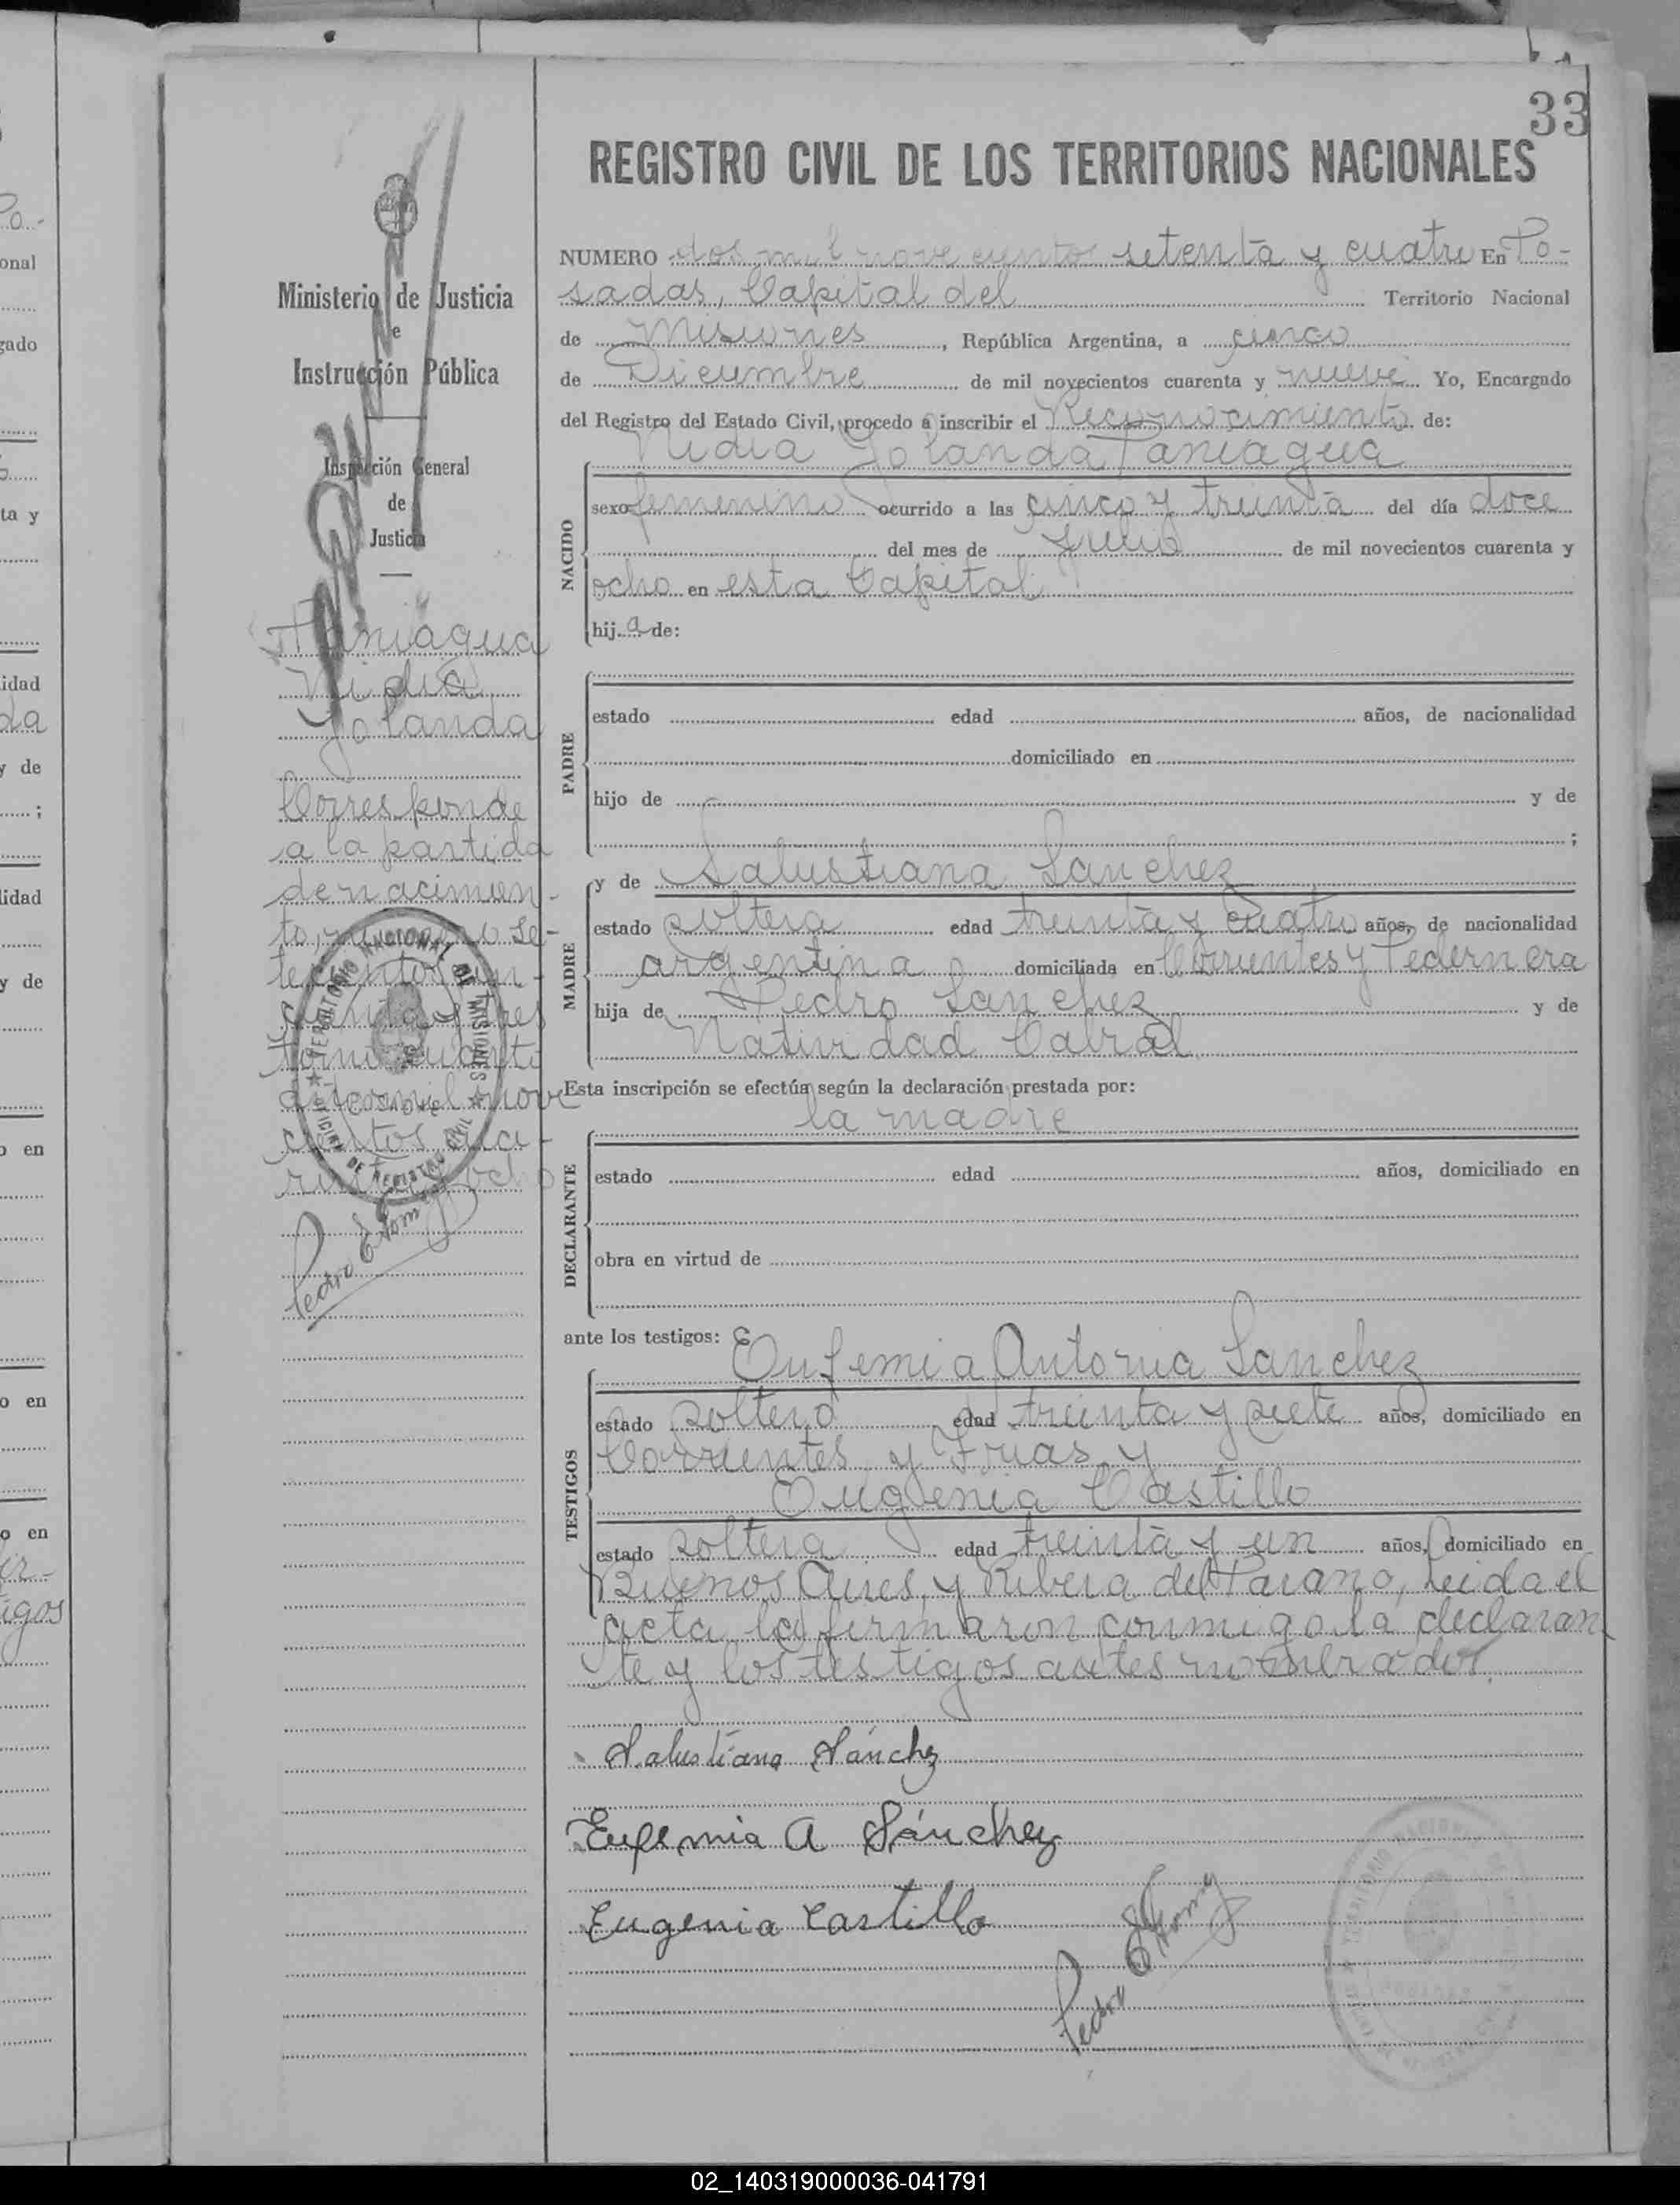 33
REGISTRO CIVIL DE LOS TERRITORIOS NACIONALES
NUMERO dos mil novecientos setenta y cuatro En Po-
sadas, Capital del Territorio Nacional
de Misiones, República Argentina, a cinco
de Diciembre de mil novecientos cuarenta y nueve Yo, Encargado
del Registro del Estado Civil, procedo a inscribir el Reconocimiento de:
Nidia Yolanda Paniagua
NACIDO
sexo femenino ocurrido a las cinco y treinta del día doce
del mes de Julio de mil novecientos cuarenta y
ocho en esta Capital
hij a de:
PADRE
estado edad años, de nacionalidad
domiciliado en
hijo de y de
;
MADRE
y de Salustiana Sanchez
estado soltera edad treinta y cuatro años, de nacionalidad
argentina domiciliada en Corrientes y Pedernera
hija de Pedro Sanchez y de
Natividad Cabral
Esta inscripción se efectúa según la declaración prestada por:
la madre
DECLARANTE
estado edad años, domiciliado en
obra en virtud de
ante los testigos: Eufemia Antonia Sanchez
TESTIGOS
estado soltero edad treinta y siete años, domiciliado en
Corrientes y Frias y
Eugenia Castillo
estado soltera edad treinta y un años, domiciliado en
Buenos Aires y Ribera del Parana, leida el
acta la firmaron conmigo la declaran
te y los testigos antes nombrados.
Salustiana Sánchez
Eufemia A Sánchez
Eugenia Castillo
Pedro
Ministerio de Justicia
e
Instrucción Pública
Inspección General
de
Justicia
Paniagua
Nidia
Yolanda
Corresponde
a la partida
de nacimien-
to, numero se-
tecientos cin-
cuenta y tres
tomo cuarto
del año mil nove
cientos cua-
renta y ocho
TERRITORIO NACIONAL DE MISIONES
OFICINA DE REGISTRO CIVIL
Pedro
02_140319000036-041791